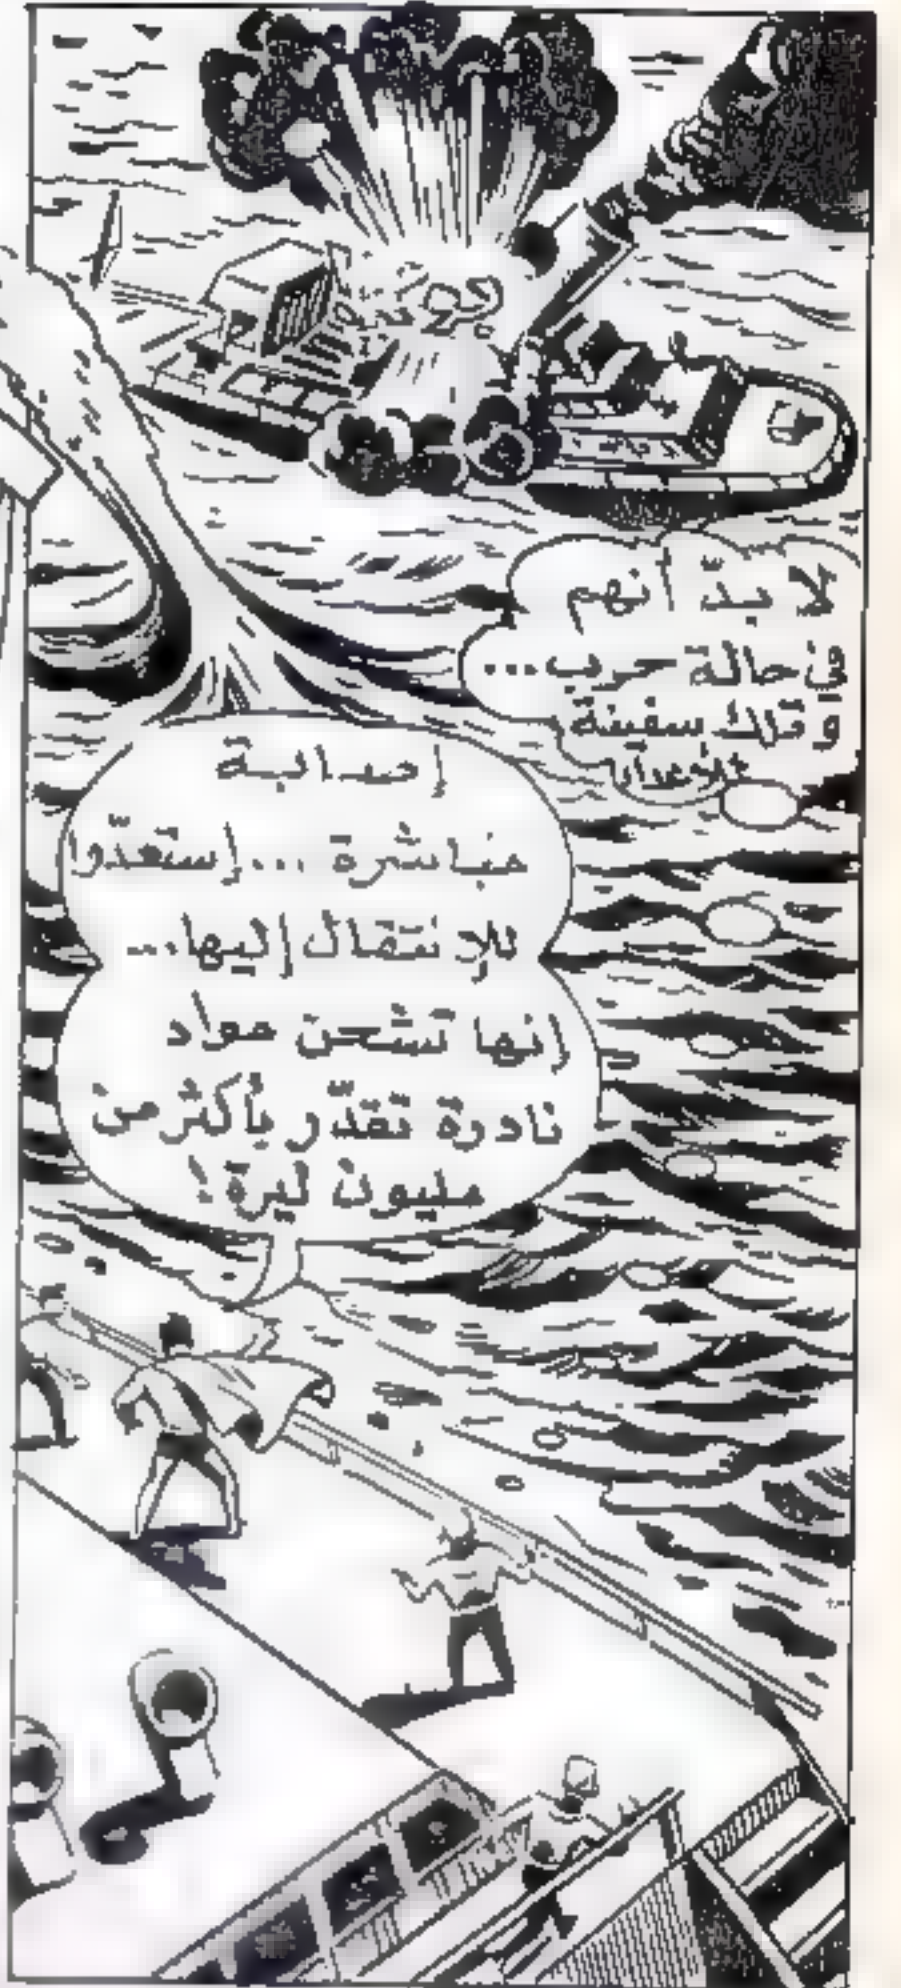 لا بدّ أنهم
في حالة حرب...
وتلك سفينة
الأعداء
إصابة
مباشرة ...إستعدّوا
للإنتقال إليها...
إنها تشحن مواد
نادرة تقدّر بأكثر من
مليون ليرة!